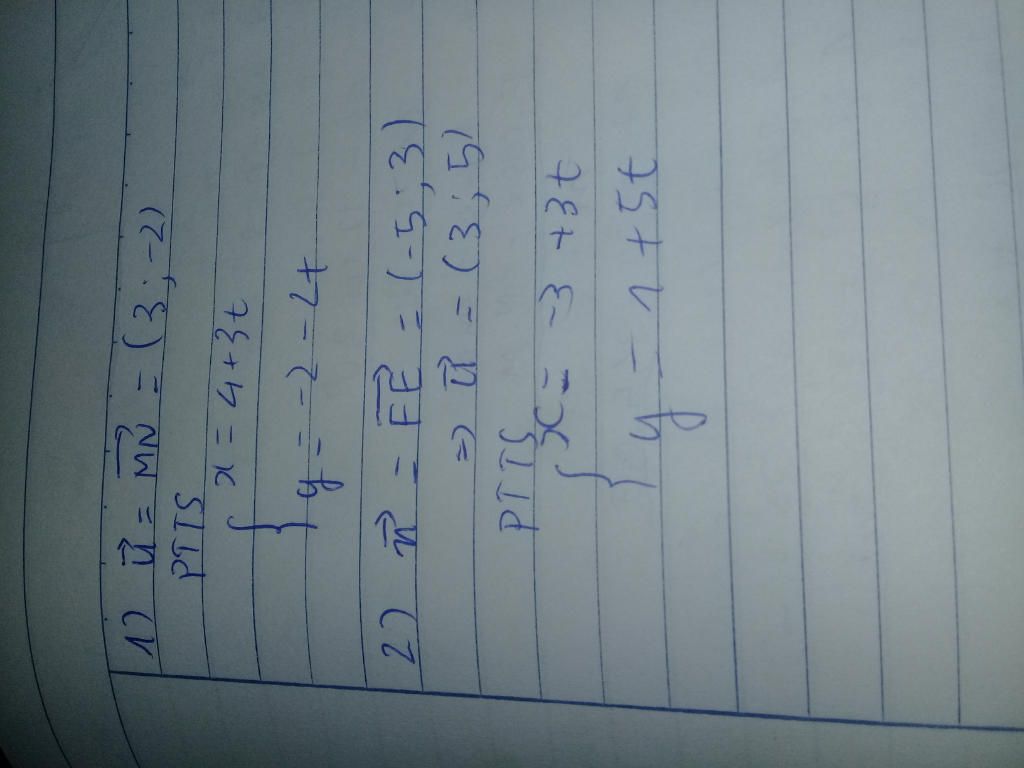 1) u⃗ = MN⃗ = (3 ; -2)
PTTS
{ x = 4 + 3t
y = -2 - 2t
2) n⃗ = FE⃗ = (-5 ; 3)
=> u⃗ = (3 ; 5)
PTTS
{ x = -3 + 3t
y = 1 + 5t